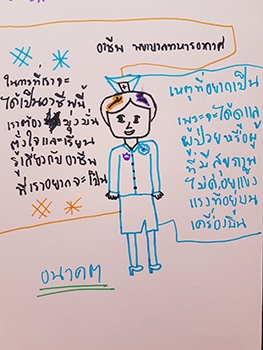 อาชีพ พยาบาลทหารอากาศ
ในการที่เราจะ
ได้เป็นอาชีพนี้
เราต้อง มุ่งมั่น
ตั้งใจและเรียน
รู้เสี่ยงกับอาชีพ
ที่เราอยากจะเป็น
เหตุที่อยากเป็น
เพราะจะได้ดูแล
ผู้ป่วยหรือผู้
ที่มีสุขภาพ
ไม่ดีอยู่แข็ง
แรงที่อยู่บน
เครื่องบิน
อนาคต